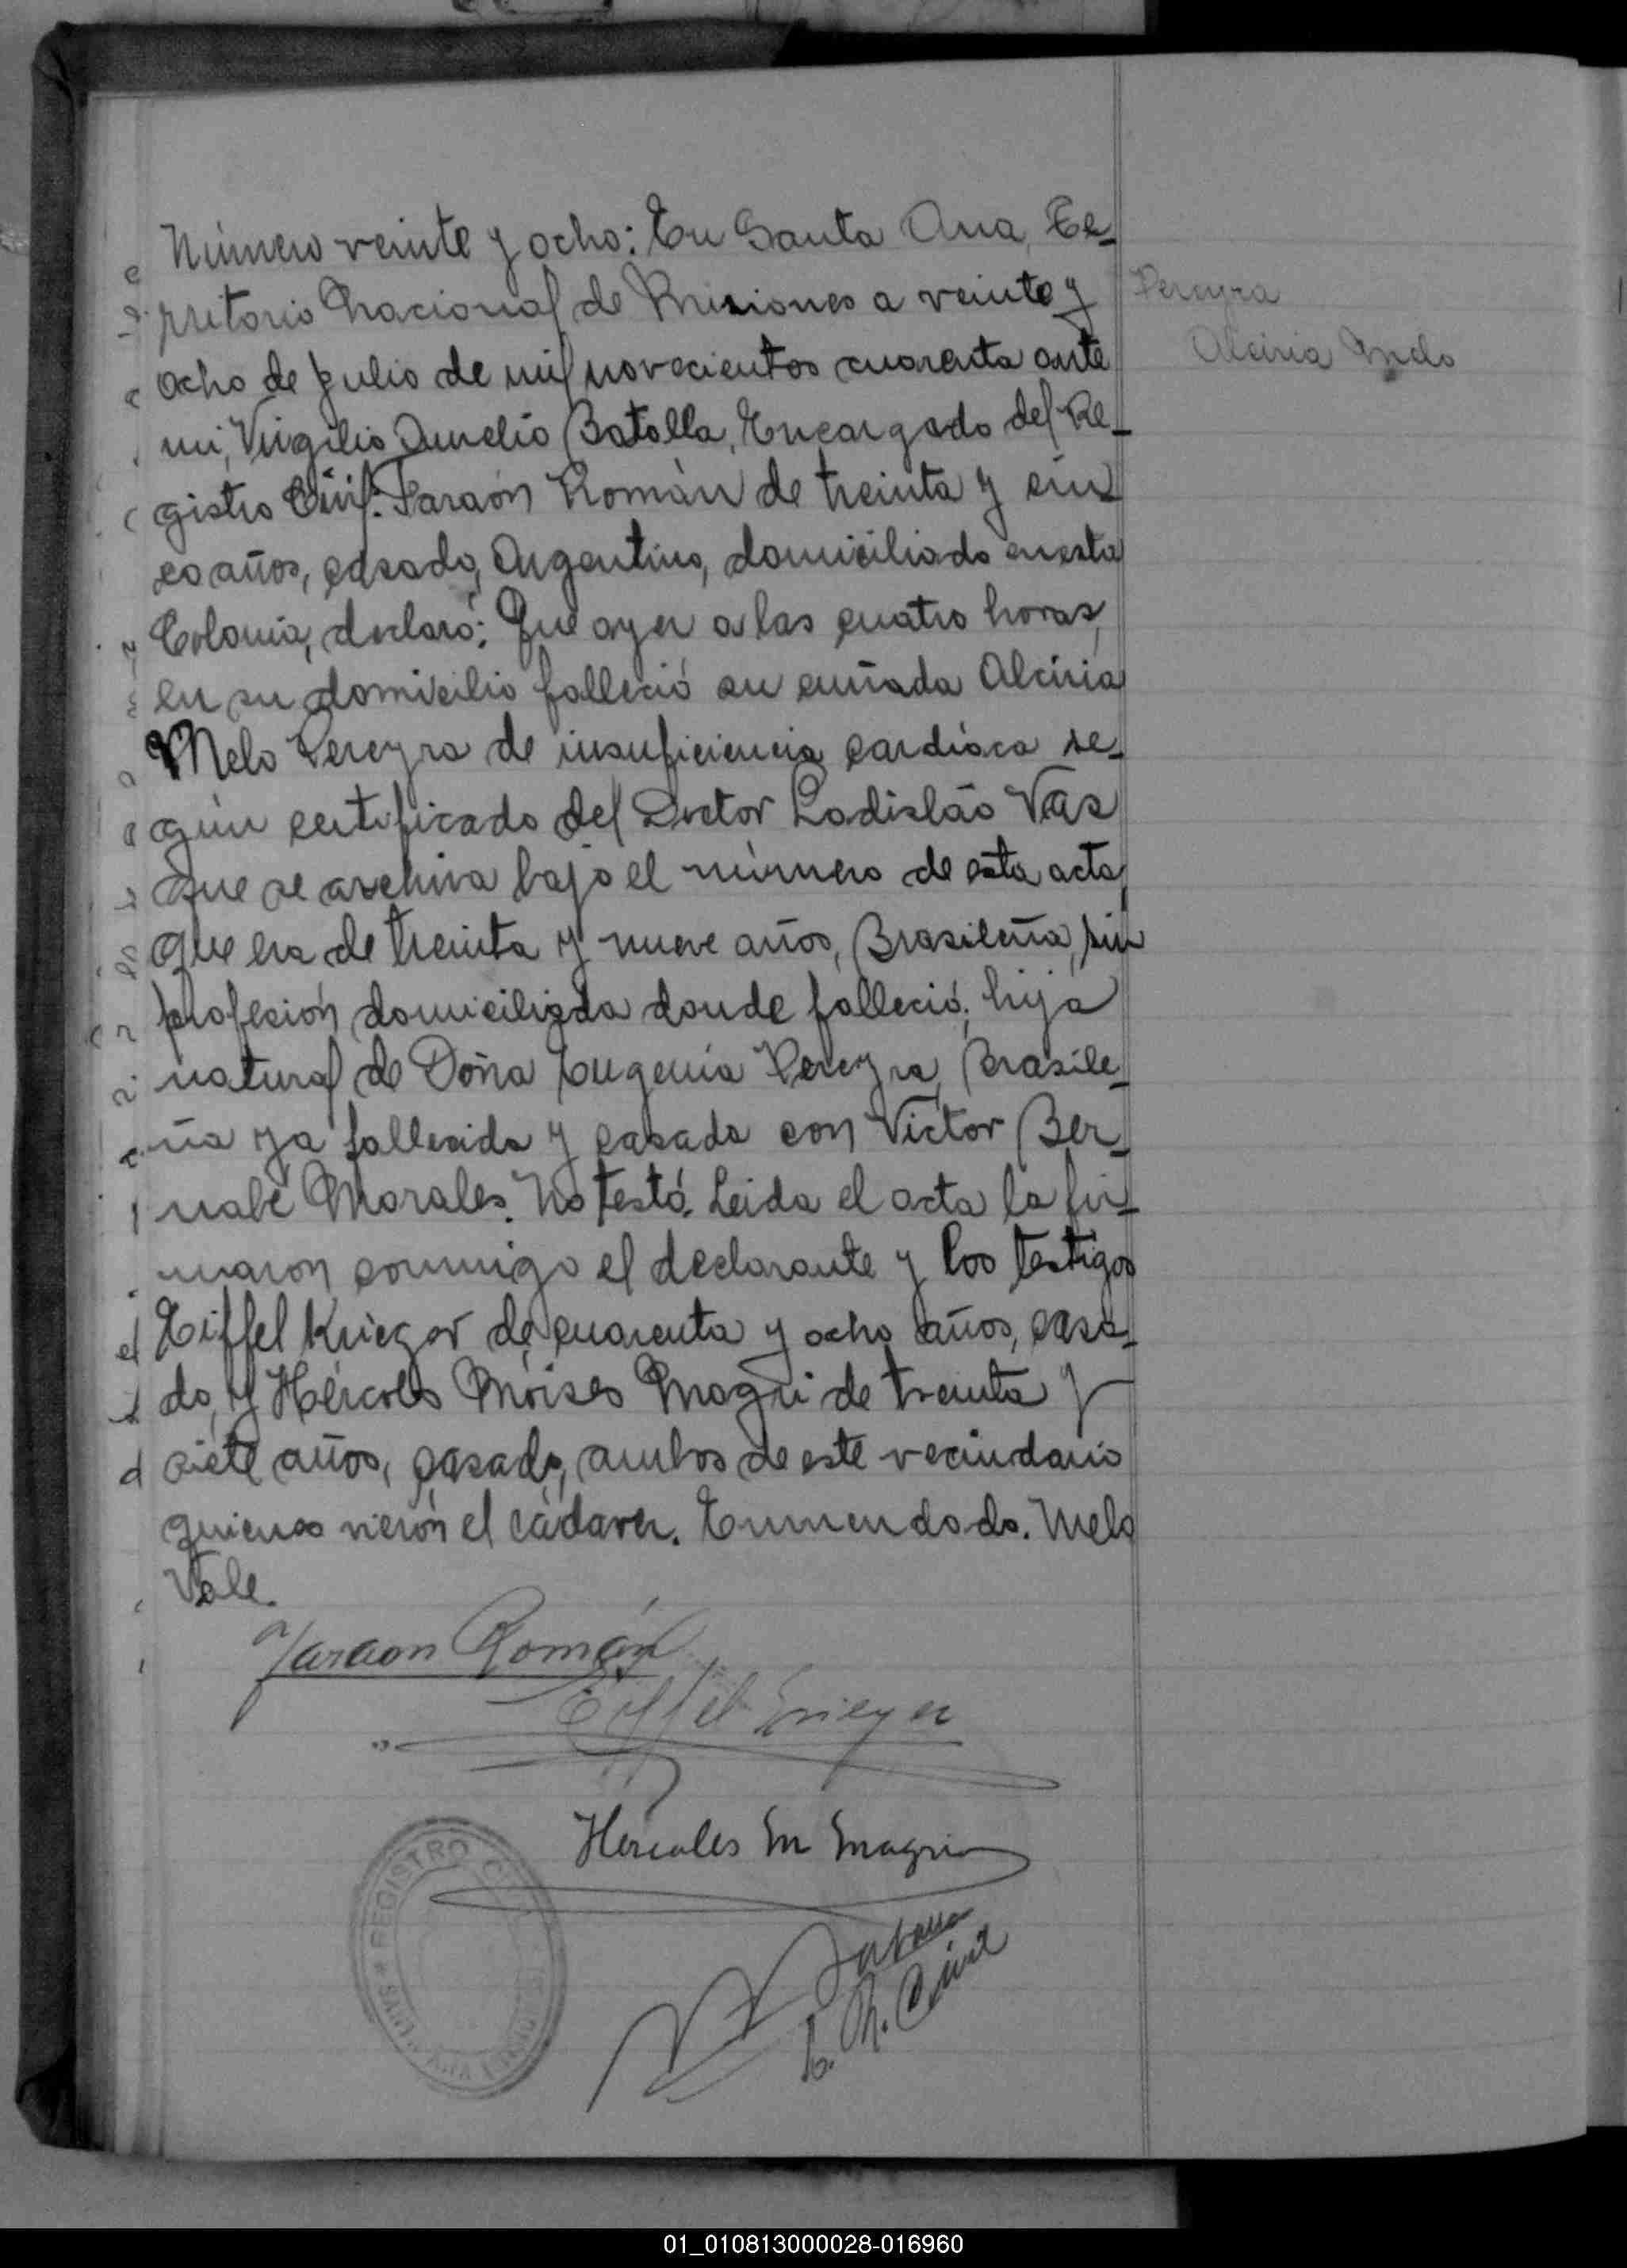 Número veinte y ocho: En Santa Ana, Te-
rritorio Nacional de Misiones a veinte y
ocho de Julio de mil novecientos cuarenta ante
mi, Virgilio Aurelio Batalla, Encargado del Re-
gistro Civil: Faraón Román de treinta y cin-
co años, casado, Argentino, domiciliado en esta
Colonia, declaró: Que ayer a las cuatro horas,
en su domicilio falleció su cuñada Alciria
Melo Pereyra de insuficiencia cardiáca se-
gún certificado del Doctor Ladislao
que se archiva bajo el número de esta acta,
que era de treinta y nueve años, Brasileña, sin
profesión domiciliada donde falleció; hija
natural de Doña Eugenia Pereyra, Brasile-
ña ya fallecida y casada con Victor Ber-
nabé Morales. No testó. Leida el acta la fir-
maron conmigo el declarante y los testigos
Eiffel Krieger de cuarenta y ocho años, casa-
do, y Hércoles Moises Magri de treinta y
siete años, casado, ambos de este vecindario
quienes vierón el cádaver. Enmendado. Melo
Vale.
Pereyra
Alciria Melo
Faraon Román
Eiffel Krieger
Hercoles M Magri
V A Batalla
E. R. Civil
REGISTRO CIVIL
SANTA ANA
01_010813000028-016960